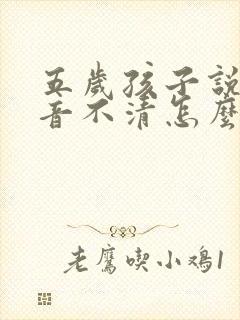 五歲孩子說
音不清怎麼
老鷹喫小鸡1